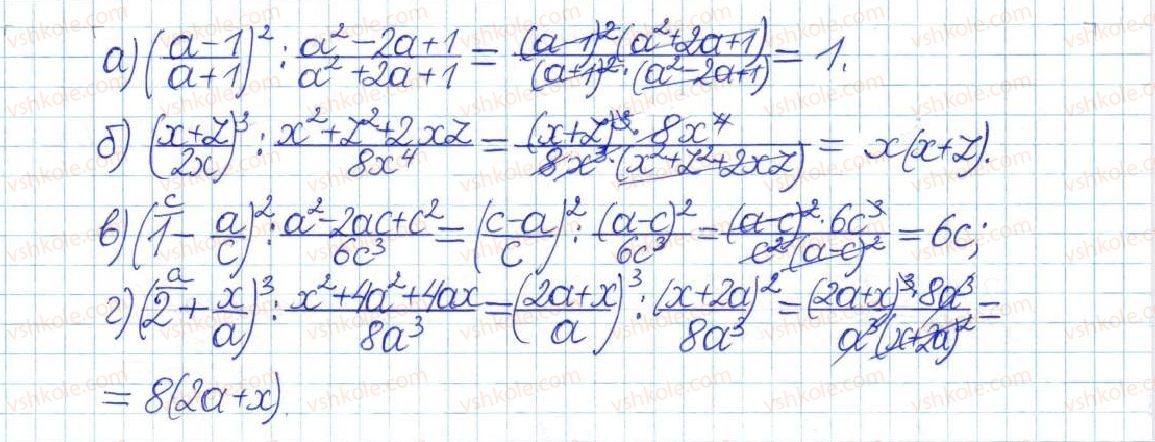 а) ((a-1)/(a+1))² : (a²-2a+1)/(a²+2a+1) = ((a-1)²(a²+2a+1))/((a+1)²·(a²-2a+1)) = 1.
б) ((x+z)/(2x))³ : (x²+z²+2xz)/(8x⁴) = ((x+z)³·8x⁴)/(8x³·(x²+z²+2xz)) = x(x+z).
в) (1 - a/c)² : (a²-2ac+c²)/(6c³) = ((c-a)/c)² : (a-c)²/(6c³) = ((a-c)²·6c³)/(c²(a-c)²) = 6c;
г) (2 + x/a)³ : (x²+4a²+4ax)/(8a³) = ((2a+x)/a)³ : (x+2a)²/(8a³) = ((2a+x)³·8a³)/(a³(x+2a)²) =
= 8(2a+x).